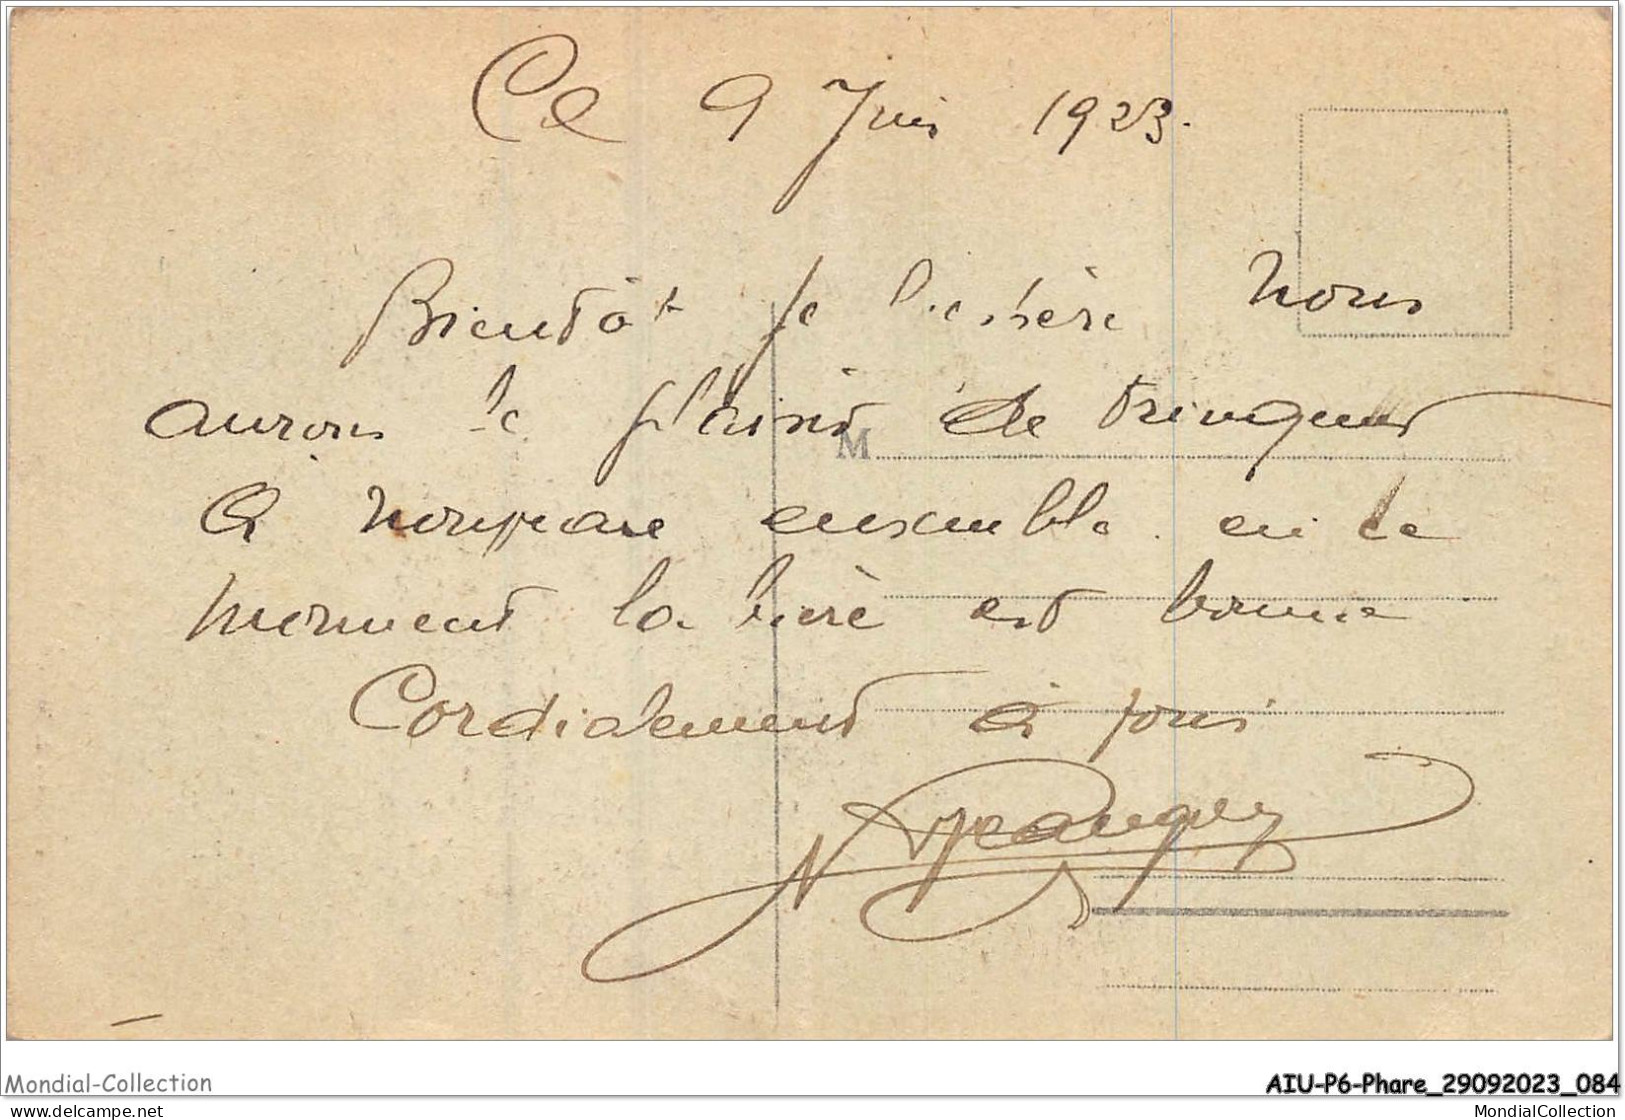 Ce 9 Juin 1923.
Bientôt je l'espère nous
aurons le plaisir de trinquer
à nouveau ensemble. en ce
moment la bière est bonne
Cordialement à tous
M
Mondial-Collection
AIU-P6-Phare_29092023_084
https://www.delcampe.net/en_US/collectibles/store/MondialCollection